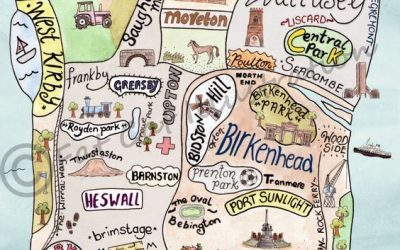 Wallasey
Saughall
Moreton
LISCARD
EGREMONT
CENTRAL
PARK
WEST KIRBY
Frankby
GREASBY
UPTON
Poulton
NORTH
END
SEACOMBE
BIDSTON
HILL
Birkenhead
PARK
Royden park
Birkenhead
WOOD
SIDE
The Wirral Way
Thurstaston
BARNSTON
Prenton
Park
Tranmere
ROCK FERRY
HESWALL
The OVAL
Bebington
PORT SUNLIGHT
brimstage